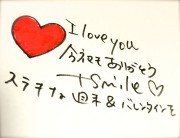 I love you
今年もありがとう
+Smile♡
ステキな週末&バレンタインを